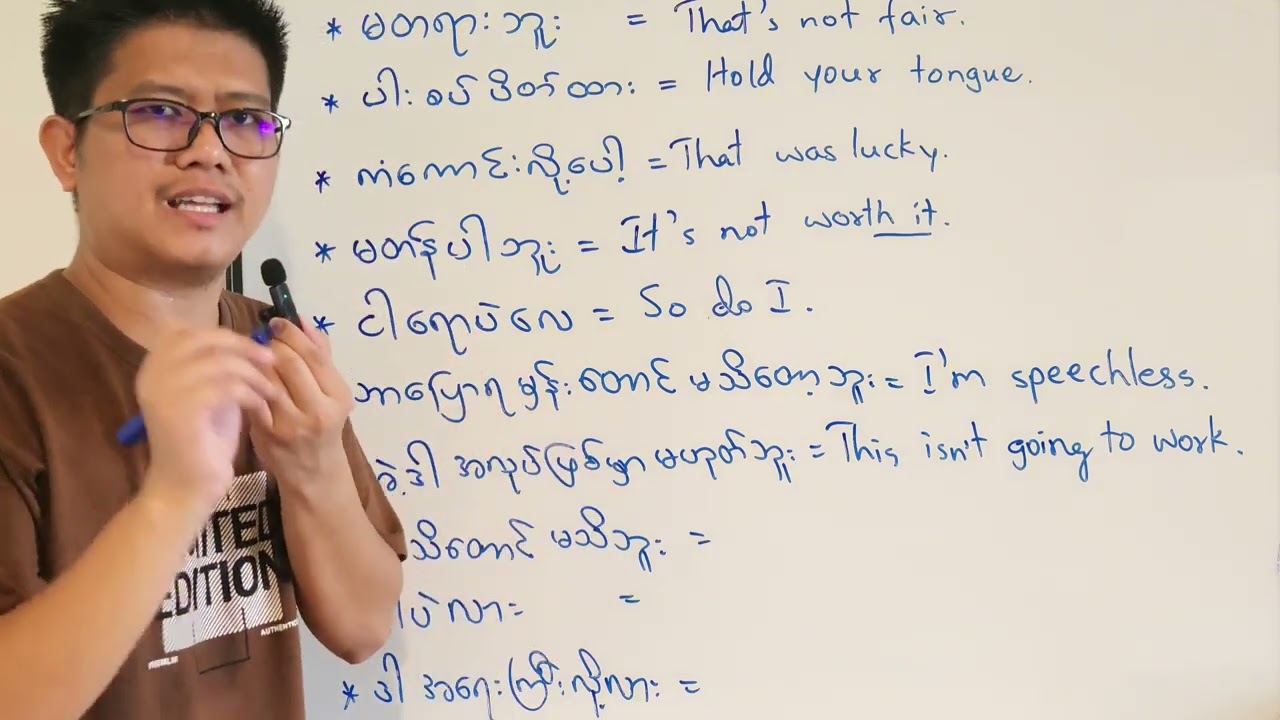 * မတရားဘူး = That's not fair.
* ပါးစပ်ပိတ်ထား = Hold your tongue.
* ကံကောင်းလို့ပေါ့ = That was lucky.
* မတန်ပါဘူး = It's not worth it.
* ငါရောပဲလေ = So do I.
ဘာပြောရမှန်းတောင် မသိတော့ဘူး = I'm speechless.
ဒါ အလုပ်ဖြစ်မှာမဟုတ်ဘူး = This isn't going to work.
သိတောင် မသိဘူး =
ပဲလား =
* ဒါ အရေးကြီးလို့လား =
LIMITED
EDITION
AUTHENTIC